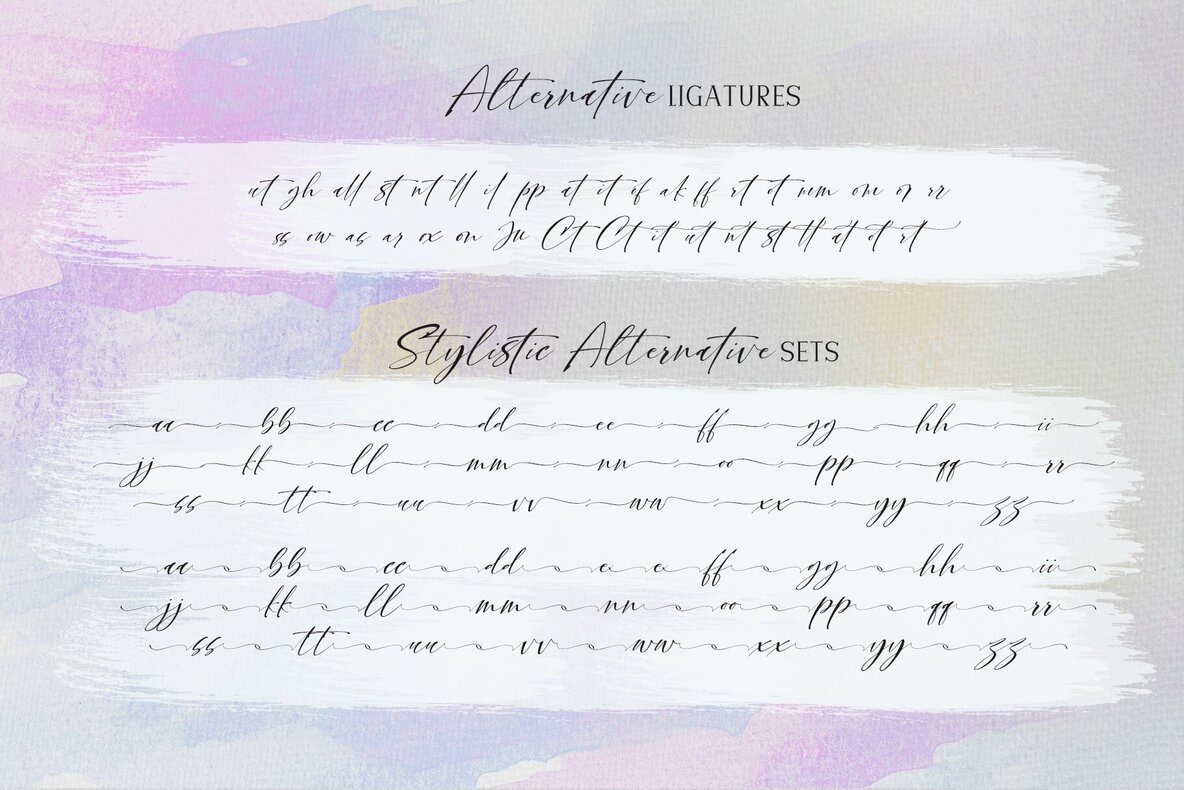 Alternative LIGATURES
ut gh all st nt ll il pp at it of ak ff rt ot mm om or rr
ss ow as ar ox on Ju Ct Ct it ut nt st tt at et rt
Stylistic Alternative SETS
aa bb cc dd ee ff gg hh ii
jj kk ll mm nn oo pp qq rr
ss tt uu vv ww xx yy zz
aa bb cc dd e e ff gg hh ii
jj kk ll mm nn oo pp qq rr
ss tt uu vv ww xx yy zz